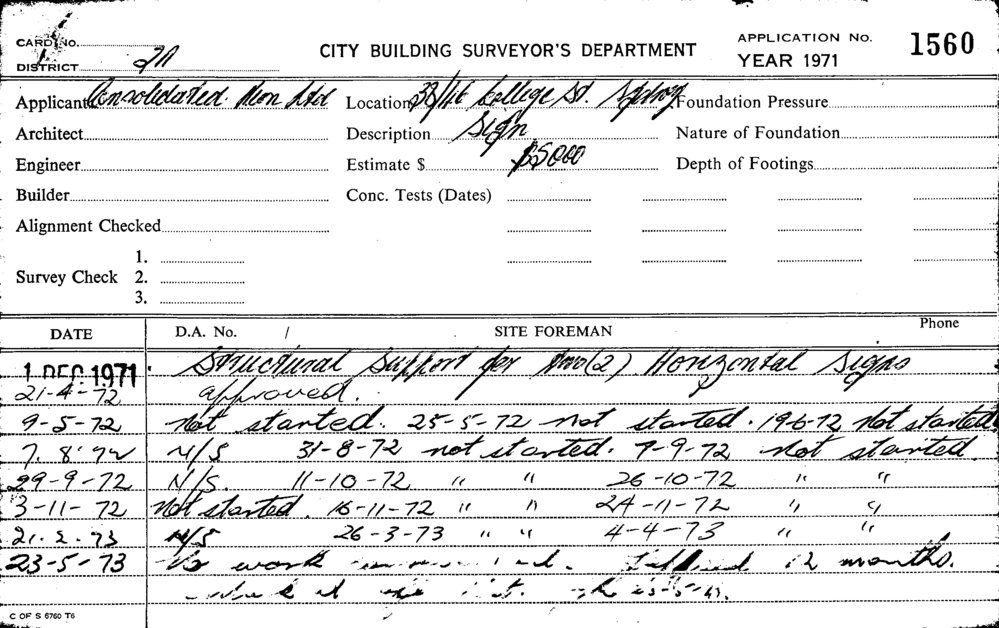 CARD No.
DISTRICT 2A
CITY BUILDING SURVEYOR'S DEPARTMENT
APPLICATION No. 1560
YEAR 1971
Applicant Consolidated Neon Ltd Location 38/46 College St. Sydney Foundation Pressure
Architect Description Sign Nature of Foundation
Engineer Estimate $ $5000 Depth of Footings
Builder Conc. Tests (Dates)
Alignment Checked
1.
Survey Check 2.
3.
DATE D.A. No. / SITE FOREMAN Phone
1 DEC 1971 Structural Support for two (2) Horizontal Signs
21-4-72 approved.
9-5-72 Not started. 25-5-72 not started. 19-6-72 Not started
7.8.72 N/S 31-8-72 not started. 7-9-72 not started.
29-9-72 N/S. 11-10-72 " " 26-10-72 " "
3-11-72 Not started. 16-11-72 " " 24-11-72 " "
21.2.73 N/S 26-3-73 " " 4-4-73 " "
23-5-73 No work 12 months.